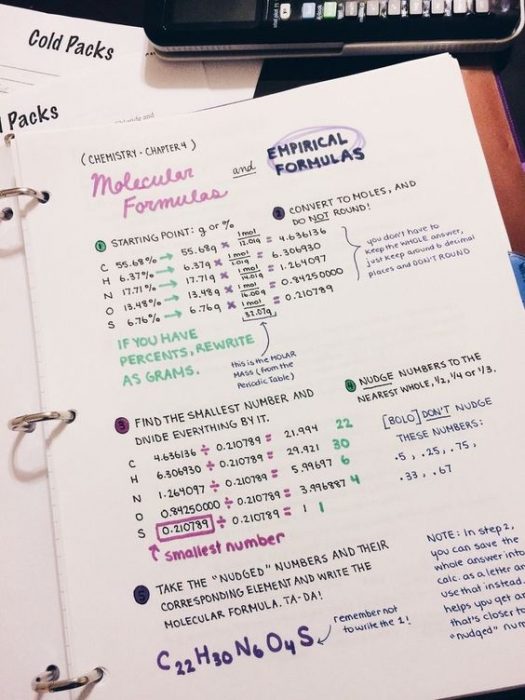 Cold Packs
Packs
(CHEMISTRY - CHAPTER 4)
Molecular Formulas and EMPIRICAL FORMULAS
① STARTING POINT: g or %
C 55.68% → 55.68g × 1 mol / 12.01g = 4.636136
H 6.37% → 6.37g × 1 mol / 1.01g = 6.306930
N 17.71% → 17.71g × 1 mol / 14.01g = 1.264097
O 13.48% → 13.48g × 1 mol / 16.00g = 0.84250000
S 6.76% → 6.76g × 1 mol / 32.07g = 0.210789
IF YOU HAVE
PERCENTS, REWRITE
AS GRAMS.
this is the MOLAR
MASS (from the
Periodic Table)
② CONVERT TO MOLES, AND
DO NOT ROUND!
you don't have to
keep the WHOLE answer,
just keep around 6 decimal
places and DON'T ROUND
③ FIND THE SMALLEST NUMBER AND
DIVIDE EVERYTHING BY IT.
C 4.636136 ÷ 0.210789 = 21.994 22
H 6.306930 ÷ 0.210789 = 29.921 30
N 1.264097 ÷ 0.210789 = 5.99697 6
O 0.84250000 ÷ 0.210789 = 3.996887 4
S 0.210789 ÷ 0.210789 = 1 1
smallest number
④ NUDGE NUMBERS TO THE
NEAREST WHOLE, 1/2, 1/4 or 1/3.
[BOLO] DON'T NUDGE
THESE NUMBERS:
.5, .25, .75,
.33, .67
⑤ TAKE THE "NUDGED" NUMBERS AND THEIR
CORRESPONDING ELEMENT AND WRITE THE
MOLECULAR FORMULA. TA-DA!
C₂₂H₃₀N₆O₄S
remember not
to write the 1!
NOTE: In step 2,
you can save the
whole answer into
calc. as a letter an
use that instead.
helps you get an
that's closer to
"nudged" num